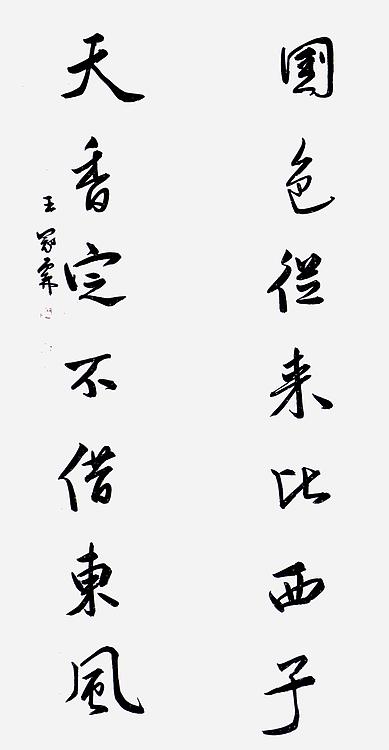 國色從来比西子
天香定不借東風
王冢霖